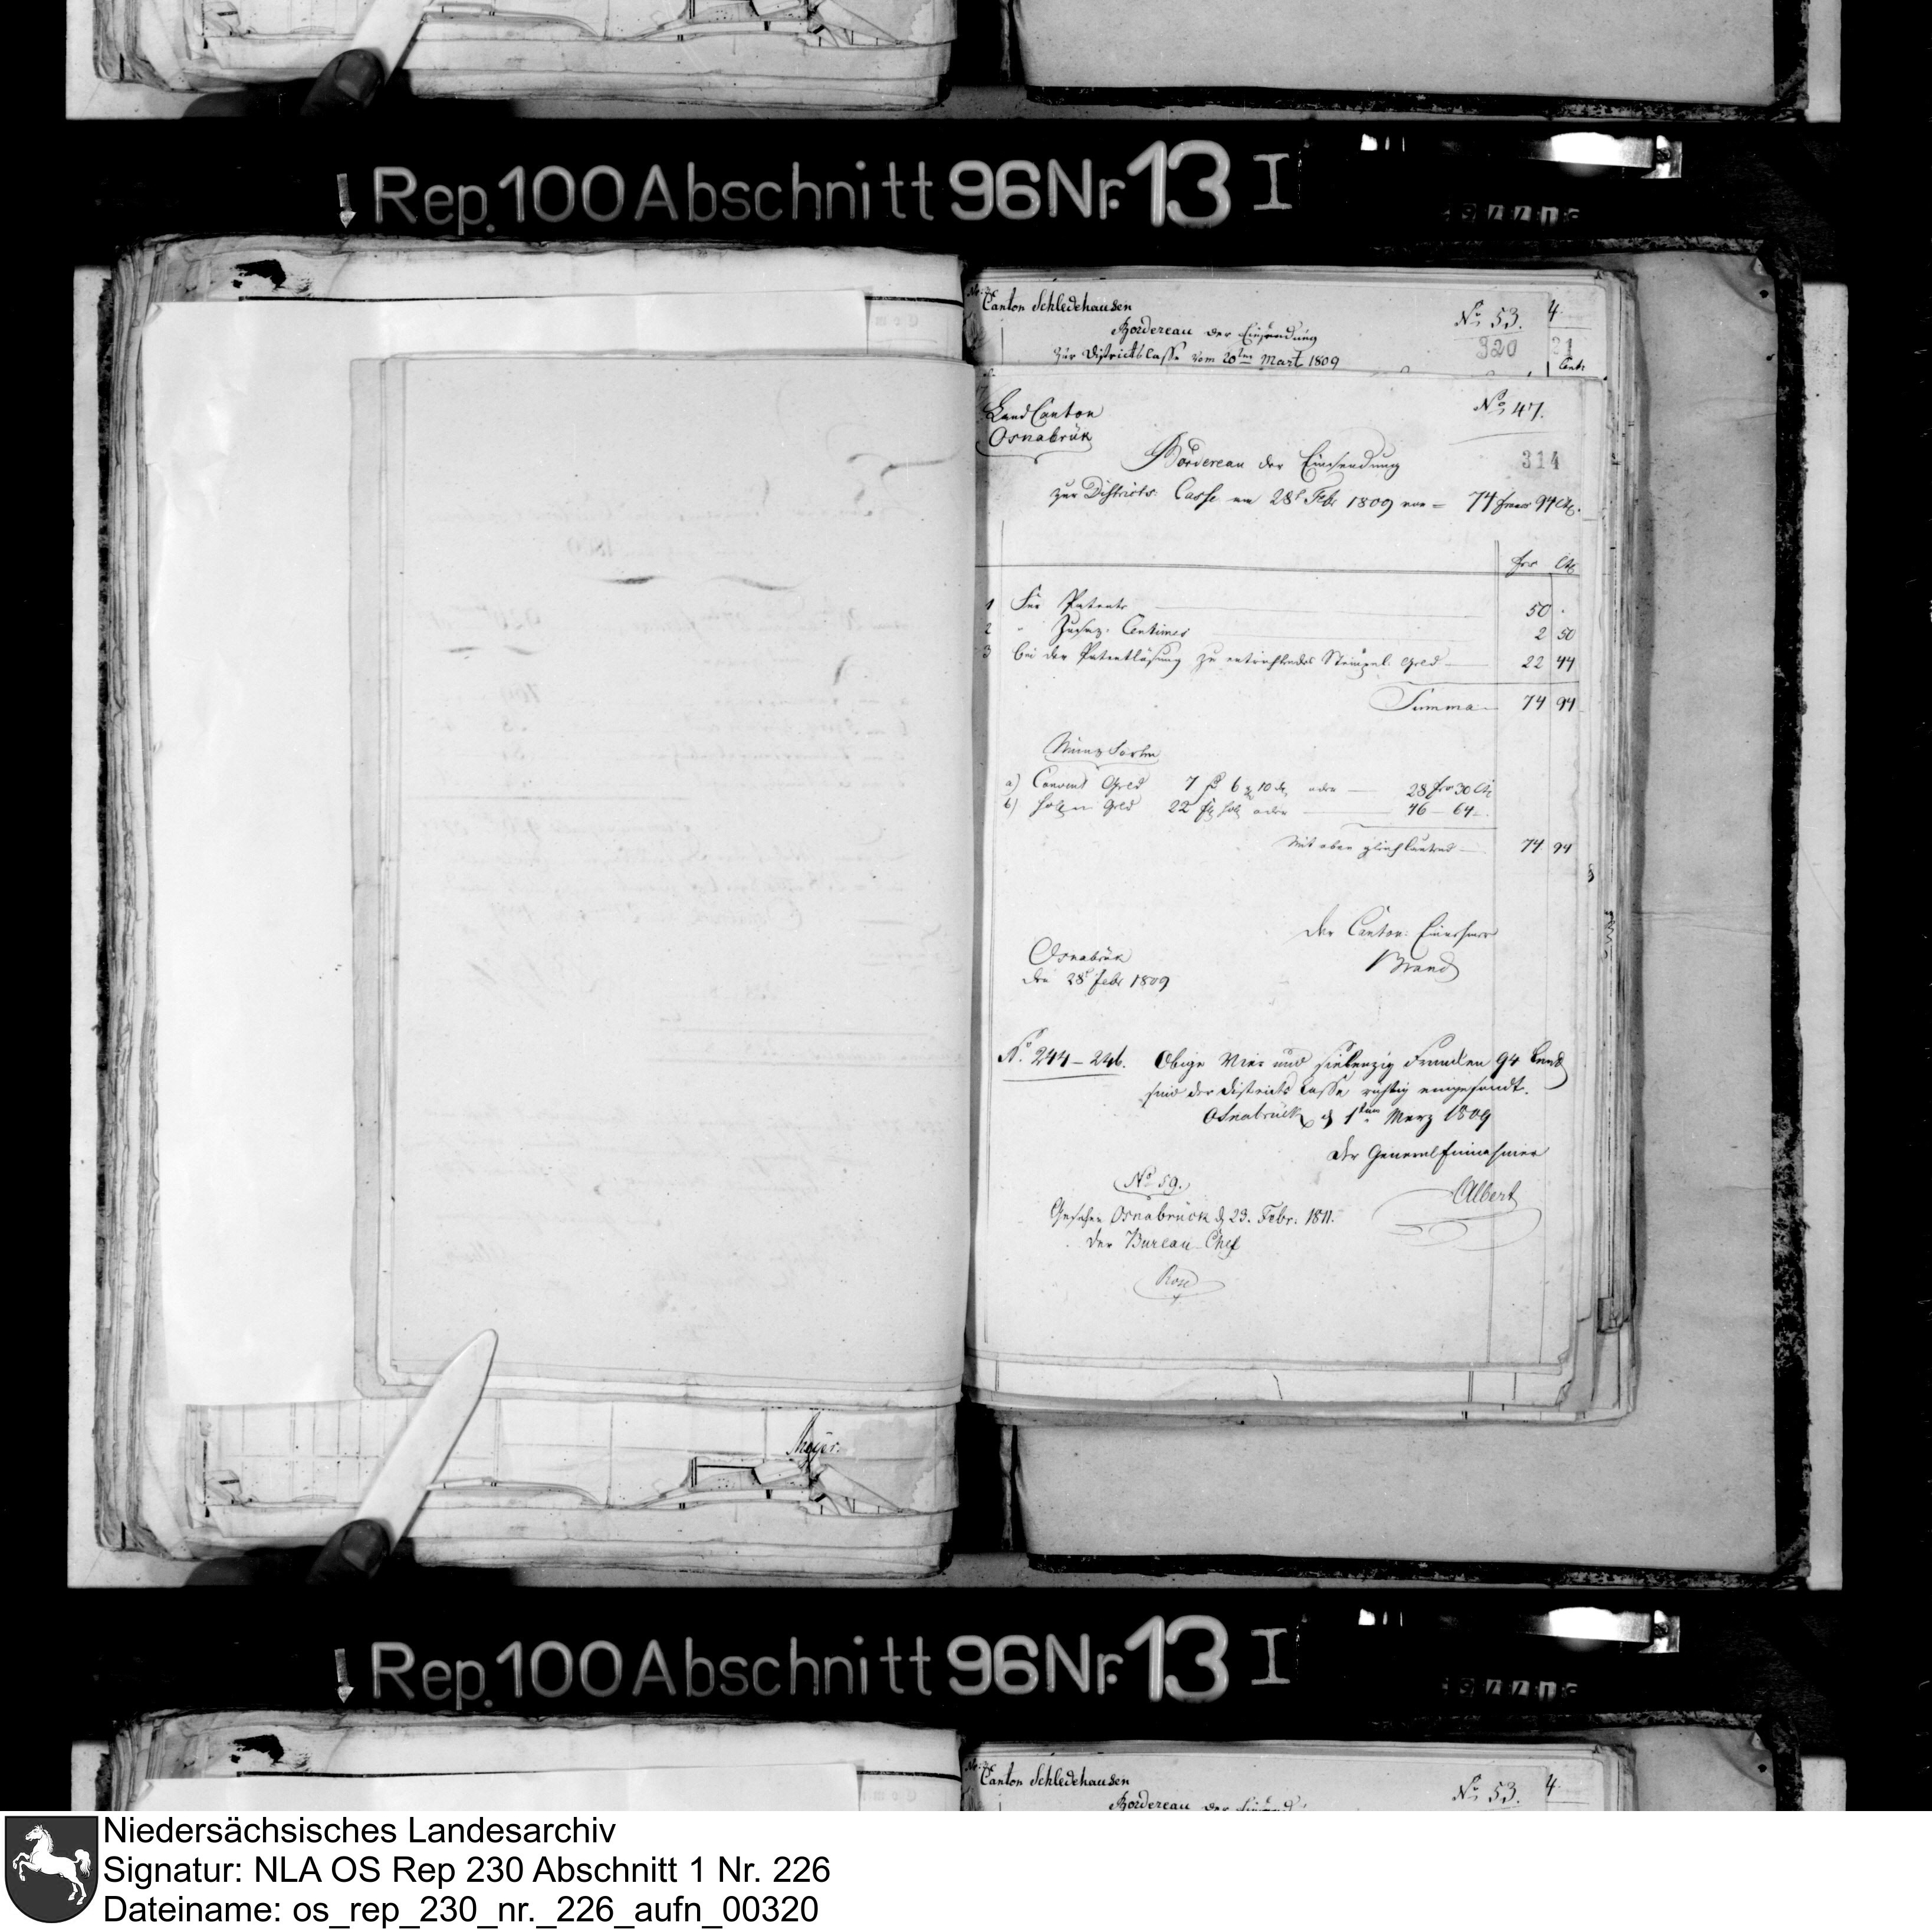 Rep. 100 Abschnitt 96 Nr. 13 I
Canton Schledehausen
No 53. 4
Bordereau der Einsendung
320
zur Districtscasse vom 20ten Mart 1809
Cents
Land Canton
Osnabrük
No 47.
314
Bordereau der Einsendung
zur Districts Casse am 28t Febr 1809 von = 74 francs 94 Cts.
frs Cts
1 Für Patente 50 .
2 " Zusaz. Centimes 2 50
3 bei der Patentlösung zu entrichtendes Stempel Geld 22 44
Summa 74 94
Münz Sorten
a) Convent Geld 7 6 10 oder 28 frs 30 Cts
b) Geld 22 oder 46 - 64.
Mit oben gleichlautend 74 94
Der Canton Einnehmer
Brand
Osnabrük
den 28t Febr 1809
No. 244 - 246. Obige Vier und siebenzig Franken 94 Cent
sind der Districts Casse richtig eingesandt.
Osnabrück d 1ten Merz 1809
Der General Einnehmer
Albert
No 59.
Gesehen Osnabrück d 23. Febr. 1811.
Der Bureau-Chef
Rose
Meyer.
Rep. 100 Abschnitt 96 Nr. 13 I
Canton Schledehausen
No 53. 4
Bordereau der
Niedersächsisches Landesarchiv
Signatur: NLA OS Rep 230 Abschnitt 1 Nr. 226
Dateiname: os_rep_230_nr._226_aufn_00320